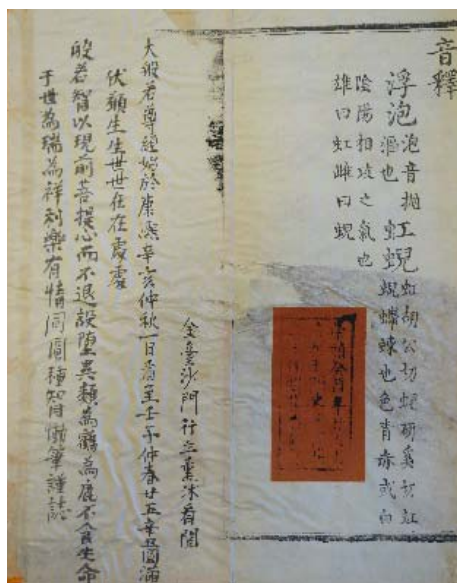 音釋
浮泡泡音拋漚也虹蜺虹胡公切蜺研奚切虹
蜺螮蝀也色青赤或白
陰陽相攻之氣也
雄曰虹雌曰蜺
沙門行之熏沐看閱
大般若尊經始於康熙辛亥仲秋一日看至壬子仲春廿五幸圓滿
伏願生生世世住在處處
般若智以現前菩提心而不退設墮異類為鶴為鹿不食生命
于世為瑞為祥利樂有情同圓種智日懶筆謹誌